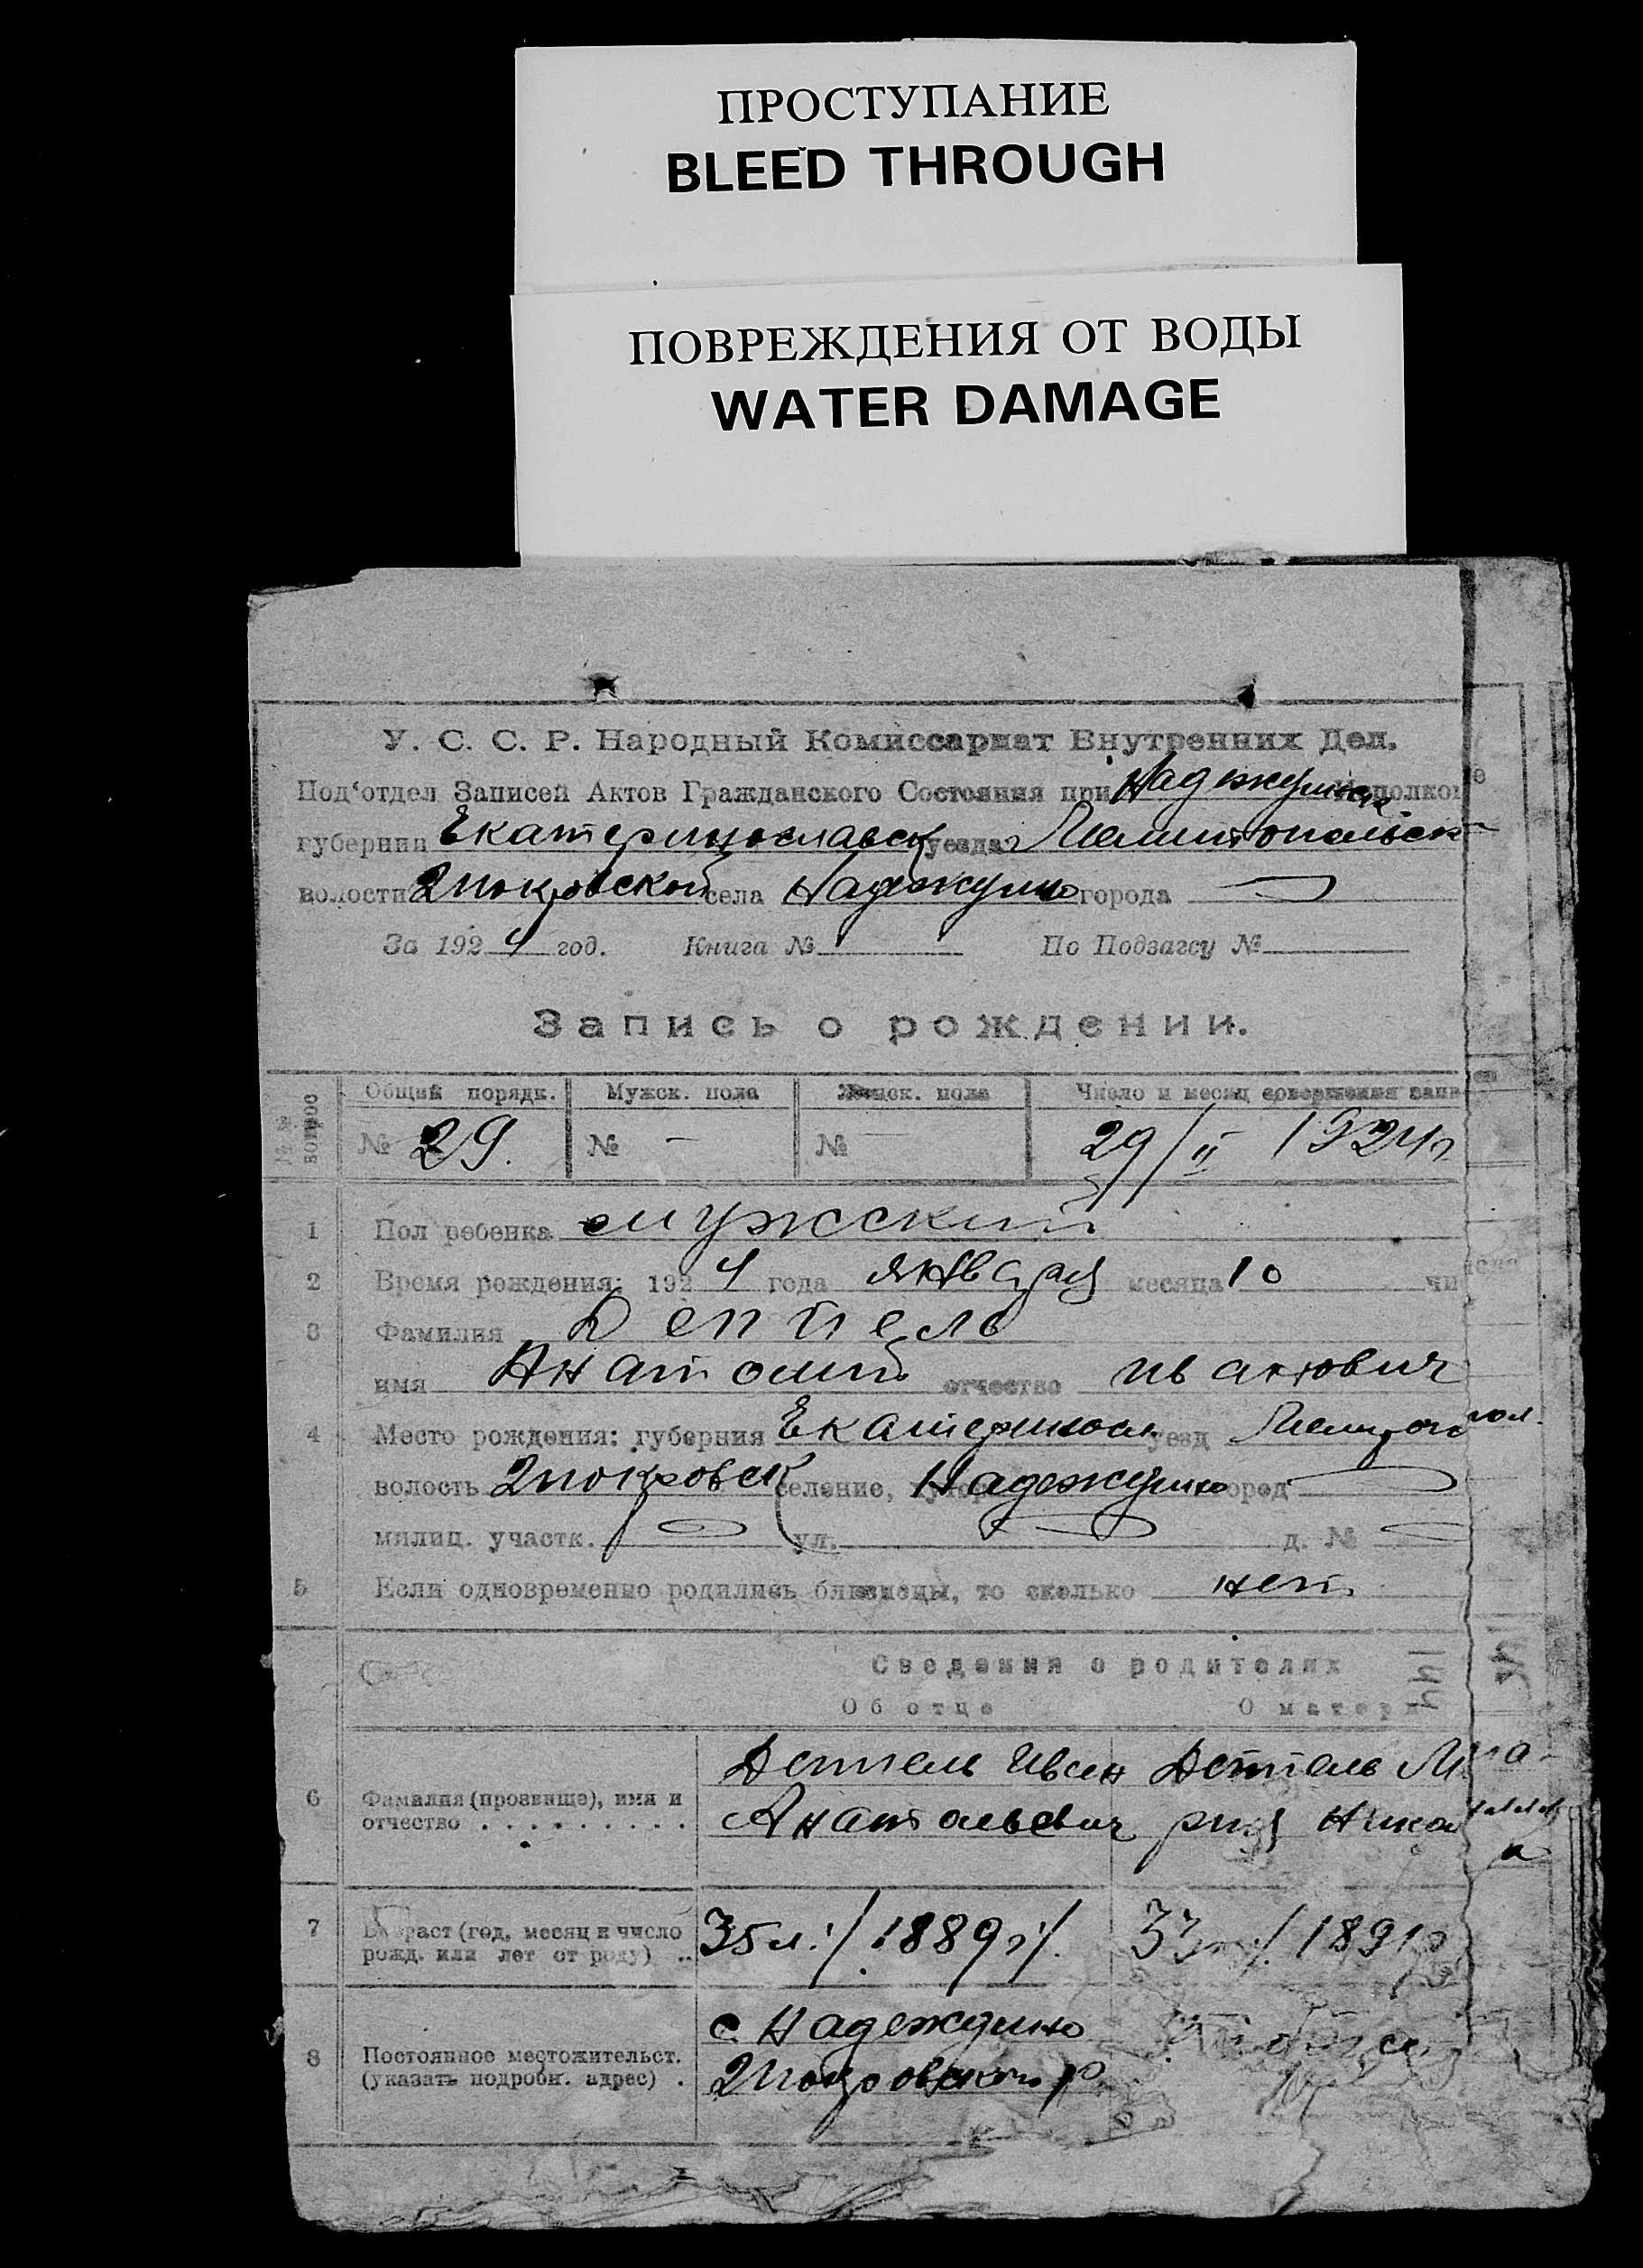 ПРОСТУПАНИЕ
BLEED THROUGH
ПОВРЕЖДЕНИЯ ОТ ВОДЫ
WATER DAMAGE
У. С. С. Р. Народный Комиссариат Внутренних Дел.
Под'отдел Записей Актов Гражданского Состояния при
губернии Екатеринославск уезда Мелитопольск
волости 2 покровской села Надеждино города
За 1924 год. Книга № По Подзагсу №
Запись о рождении.
№№ вопрос Общий порядк. Мужск. пола Женск. пола Число и месяц совершения запи
№ 29. № — № — 29/II 1924г
1 Пол ребенка мужской
2 Время рождения: 1924 года января месяца 10 чи
3 Фамилия Деттель
имя Анатолий отчество Иванович
4 Место рождения: губерния Екатеринос уезд Мелитопол.
волость 2 покровск селение, Надеждино город
милиц. участк. ул. д. №
5 Если одновременно родились близнецы, то сколько нет
Сведения о родителях
Об отце О матери
144
6 Фамилия (прозвище), имя и отчество . . . . . . . . . Деттель Иван Анатольевич Деттель
7 Возраст (год, месяц и число рожд. или лет от роду) .. 35 л. /1889 г/. 33 /1891
8 Постоянное местожительст. (указать подробн. адрес) . с. Надеждино 2 Покровского р.